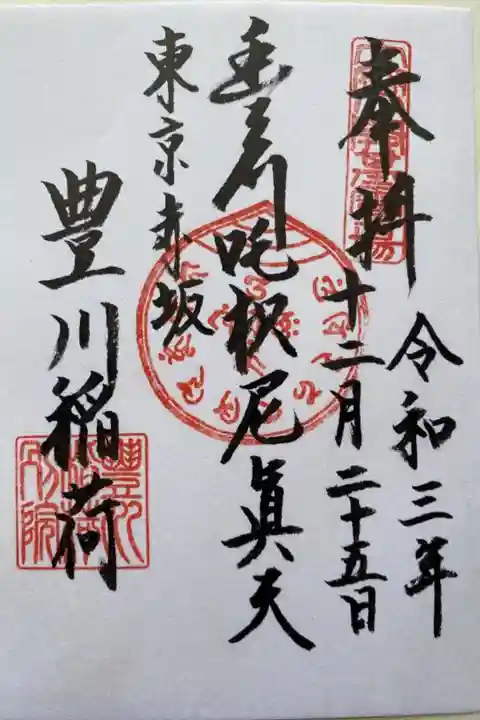 奉拝
令和三年
十二月二十五日
豊川吒枳尼眞天
東京赤坂
豊川稲荷
豊川稲荷別院